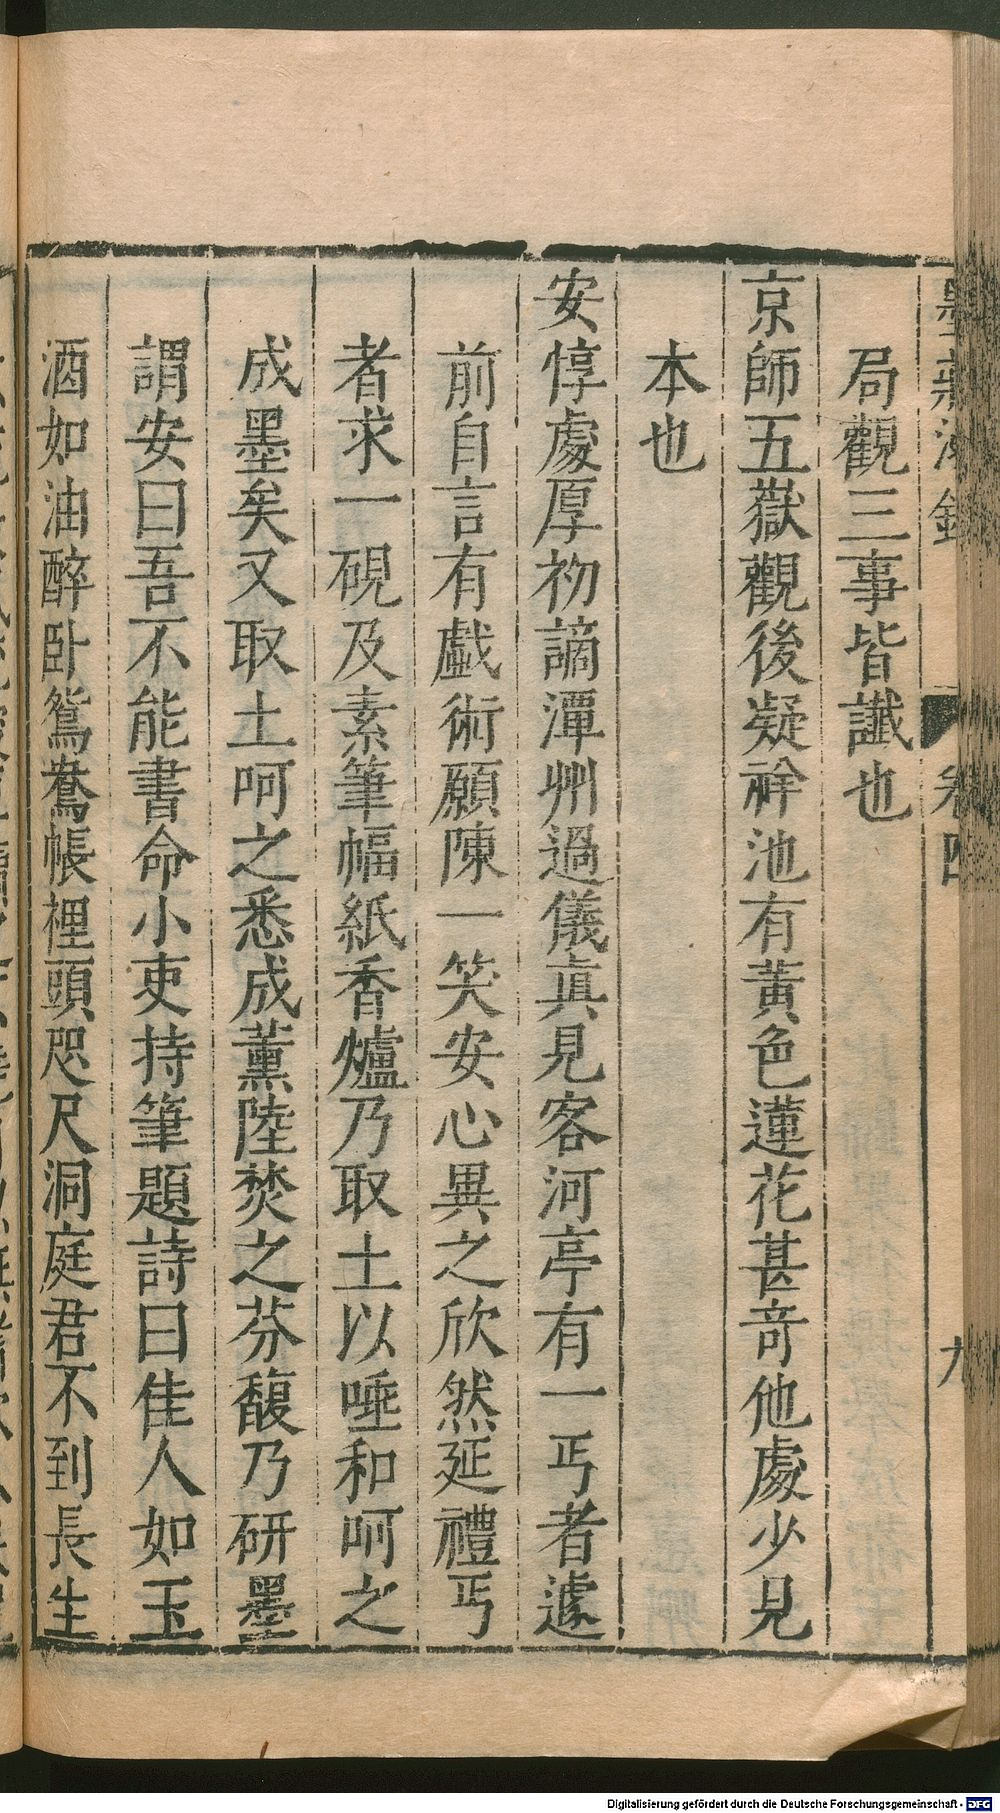 卷四
九
局觀三事皆讖也
京師五嶽觀後凝祥池有黃色蓮花甚奇他處少見
本也
安惇處厚初謫潭州過儀眞見客河亭有一丐者遽
前自言有戱術願陳一笑安心異之欣然延禮丐
者求一硯及素筆幅紙香爐乃取土以唾和呵之
成墨矣又取土呵之悉成薰陸焚之芬馥乃研墨
謂安曰吾不能書命小吏持筆題詩曰佳人如玉
酒如油醉卧鴛鴦帳裡頭咫尺洞庭君不到長生
Digitalisierung gefördert durch die Deutsche Forschungsgemeinschaft - DFG